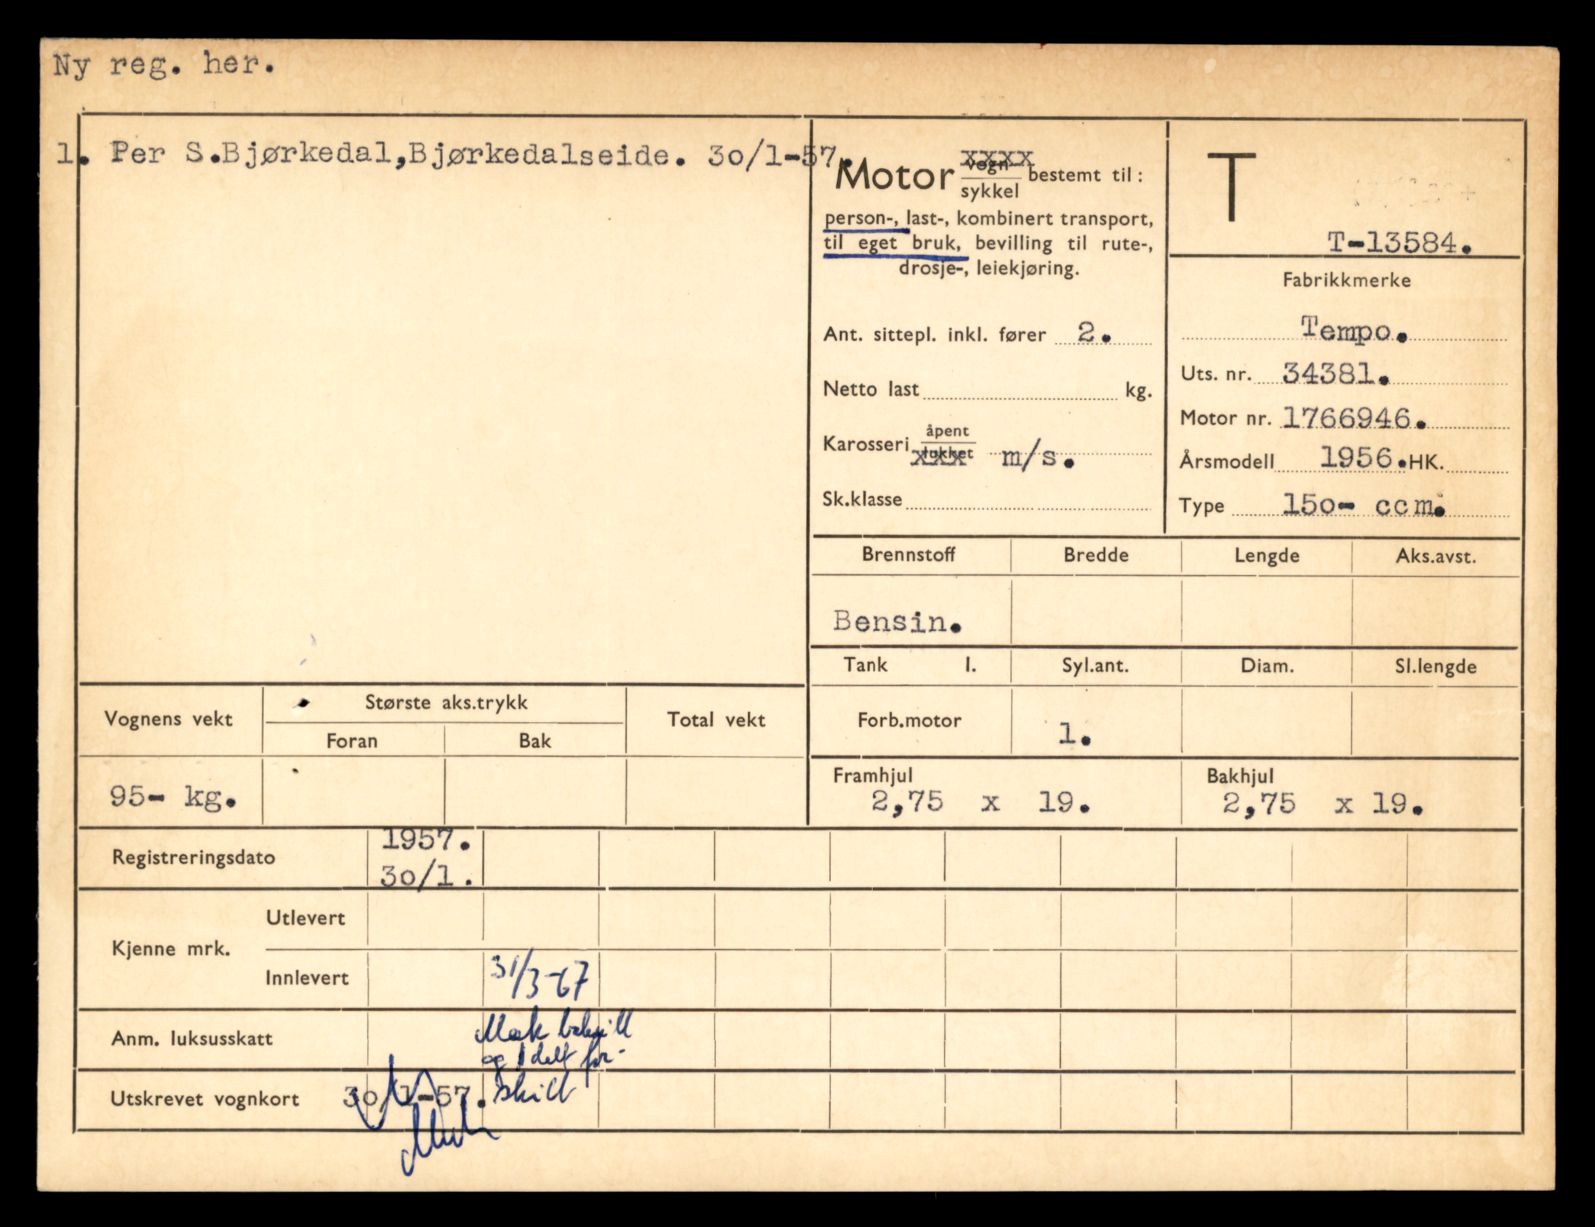 Ny reg. her.
1. Per S.Bjørkedal,Bjørkedalseide. 30/1-57.
Motor vogn xxxx
sykkel
bestemt til:
person-, last-, kombinert transport,
til eget bruk, bevilling til rute-,
drosje-, leiekjøring.
Ant. sittepl. inkl. fører 2.
Netto last kg.
Karosseri åpent
lukket xxx m/s.
Sk.klasse
T
T-13584.
Fabrikkmerke
Tempo.
Uts. nr. 34381.
Motor nr. 1766946.
Årsmodell 1956. HK.
Type 150- ccm.
Brennstoff Bredde Lengde Aks.avst.
Bensin.
Tank l. Syl.ant. Diam. Sl.lengde
Forb.motor 1.
Framhjul Bakhjul
2,75 x 19. 2,75 x 19.
Vognens vekt Største aks.trykk Total vekt
Foran Bak
95- kg.
Registreringsdato 1957.
30/1.
Kjenne mrk. Utlevert
Innlevert 31/3-67
Anm. luksusskatt
og 1 delt for-
skilt
Utskrevet vognkort 30/1-57.